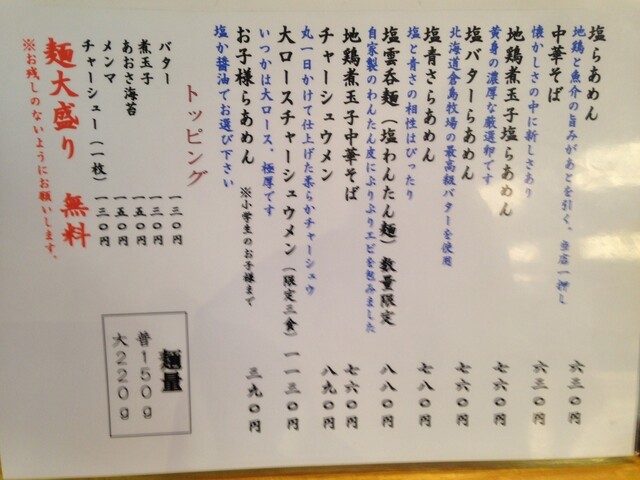 塩らあめん 六三〇円
地鶏と魚介の旨みがあとを引く、当店一押し
中華そば 六三〇円
懐かしさの中に新しさあり
地鶏煮玉子塩らあめん 七六〇円
黄身の濃厚な厳選卵です
塩バターらあめん 七六〇円
北海道倉島牧場の最高級バターを使用
塩青さらあめん 七八〇円
塩と青さの相性はぴったり
塩雲呑麺(塩わんたん麺)数量限定 八八〇円
自家製のわんたん皮にぷりぷりエビを包みました
地鶏煮玉子中華そば 七六〇円
チャーシュウメン 八九〇円
丸一日かけて仕上げた柔らかチャーシュウ
大ロースチャーシュウメン(限定三食)一一三〇円
いつかは大ロース、極厚です
お子様らあめん ※小学生のお子様まで 三九〇円
塩か醤油でお選び下さい
トッピング
バター 一三〇円
煮玉子 一三〇円
あおさ海苔 一五〇円
メンマ 一五〇円
チャーシュー(一枚) 一三〇円
麺大盛り 無料
※お残しのないようにお願いします。
麺量
普150g
大220g